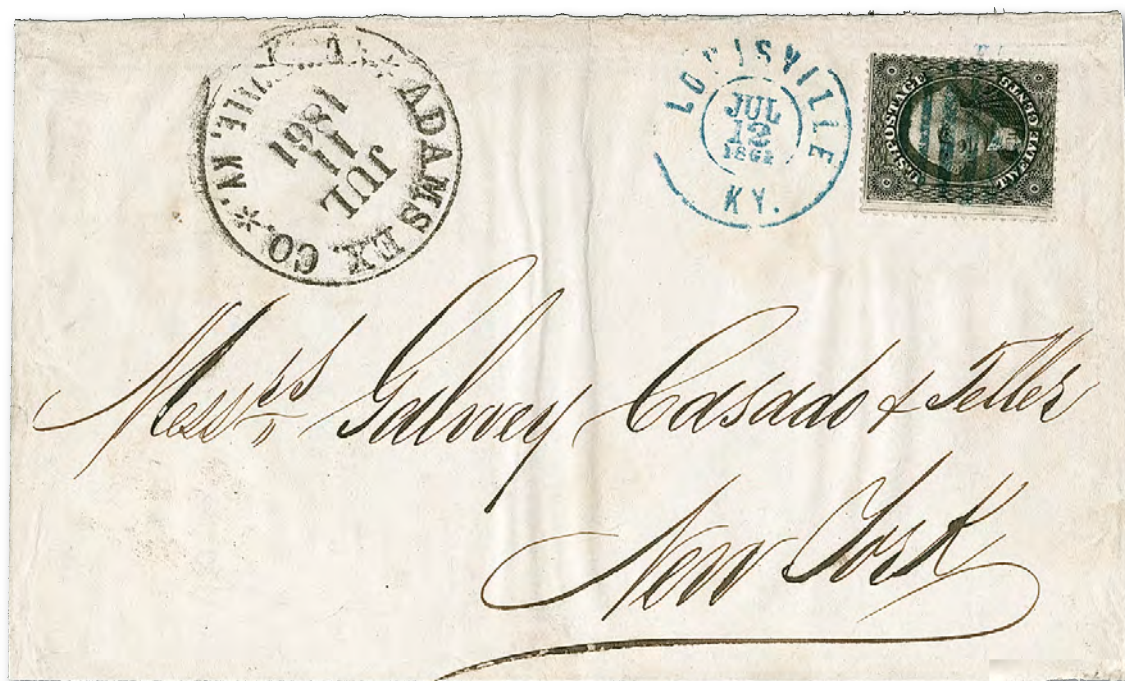 ★ ADAMS EX. CO. ★ LOUISVILLE, KY.
JUL
11
1861
LOUISVILLE
JUL
12
1861
KY.
U.S. POSTAGE
TWELVE CENTS
Messrs Galwey Casado & Teller
New York